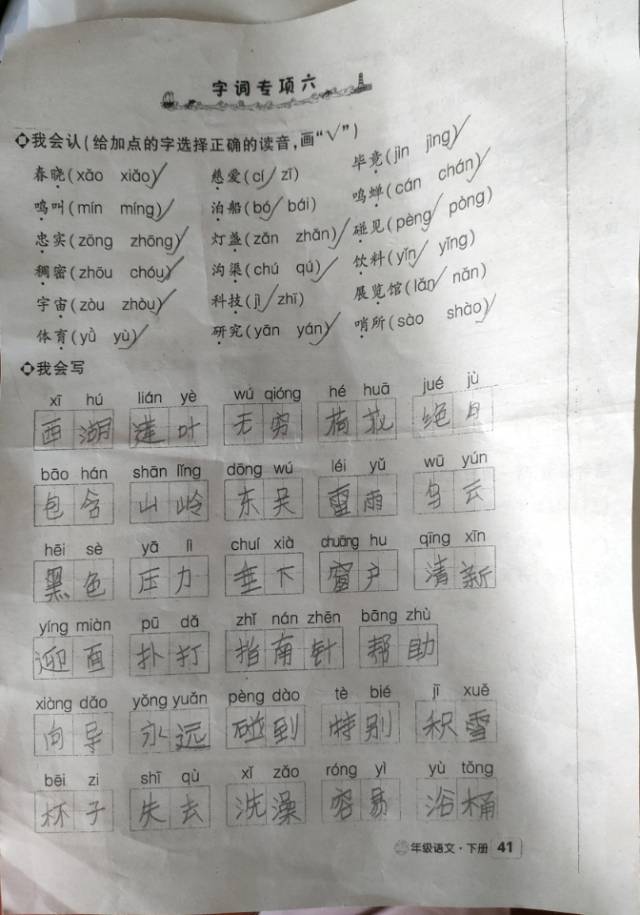 字词专项六
我会认(给加点的字选择正确的读音,画“√”)
春晓(xāo xiǎo)√ 慈爱(cí√ zī) 毕竟(jìn jìng)√
鸣叫(mín míng)√ 泊船(bó√ bái) 鸣蝉(cán chán)√
忠实(zōng zhōng)√ 灯盏(zǎn zhǎn)√ 碰见(pèng√ pòng)
稠密(zhōu chóu)√ 沟渠(chú qú)√ 饮料(yǐn√ yǐng)
宇宙(zòu zhòu)√ 科技(jì√ zhī) 展览馆(lǎn√ nǎn)
体育(yǔ yù)√ 研究(yān yán)√ 哨所(sào shào)√
我会写
xī hú lián yè wú qióng hé huā jué jù
西湖 莲叶 无穷 荷花 绝
bāo hán shān lǐng dōng wú léi yǔ wū yún
包含 山岭 东吴 雷雨 乌云
hēi sè yā lì chuí xià chuāng hu qīng xīn
黑色 压力 垂下 窗户 清新
yíng miàn pū dǎ zhǐ nán zhēn bāng zhù
迎面 扑打 指南针 帮助
xiàng dǎo yǒng yuǎn pèng dào tè bié jī xuě
向导 永远 碰到 特别 积雪
bēi zi shī qù xǐ zǎo róng yì yù tǒng
杯子 失去 洗澡 容易 浴桶
年级语文·下册 41